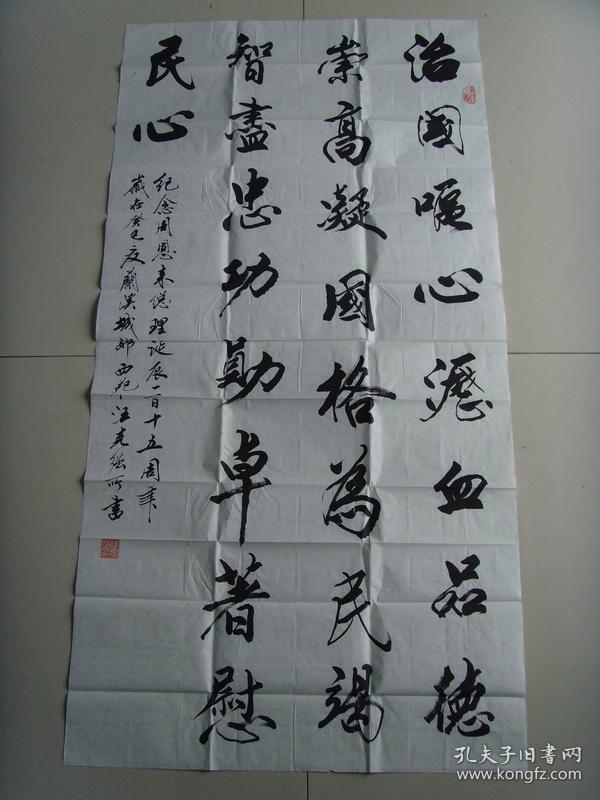 治國嘔心瀝血品德
崇高凝國格為民竭
智盡忠功勛卓著慰
民心
紀念周恩来總理誕辰一百十五周年
歲在癸巳夏蘭溪城郊西苑汪
所書
孔夫子旧書网
www.kongfz.com